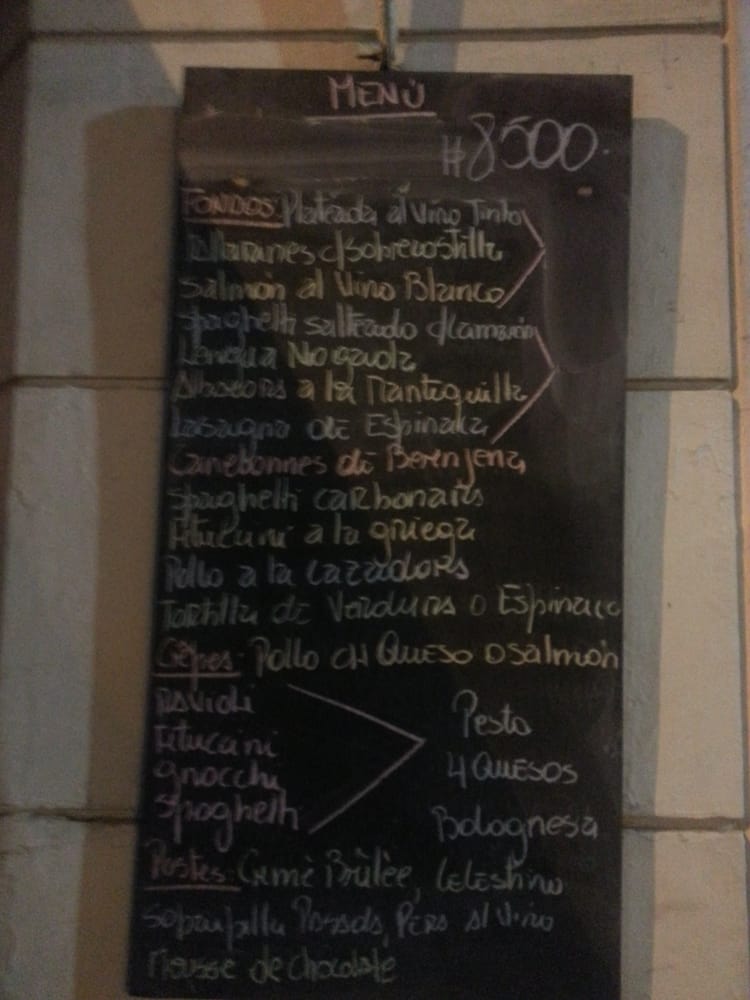 MENÚ
#8500.
FONDOS: Plateada al Vino Tinto
Tallarines c/sobrecostilla
Salmón al Vino Blanco
Spaghetti salteado c/camarón
Lengua Nogada
a la Mantequilla
Lasagna de Espinaca
Canebonnes de Berenjena
Spaghetti carbonara
Fetuccini a la griega
Pollo a la cazadora
Tortilla de Verduras o Espinaca
Crêpes: Pollo CH Queso o salmón
Ravioli
Fetuccini
gnocchi
Spaghetti
Pesto
4 Quesos
Bolognesa
Postes: Brûlèe, Celestino
Sopaipilla Pasada, Pera al Vino
Mousse de chocolate